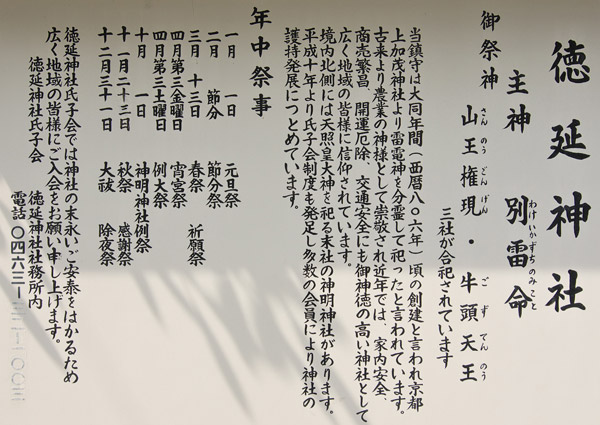 徳延神社
主神 別雷命
わけいかずちのみこと
御祭神 山王権現・牛頭天王
さんのうごんげん ごずてんのう
三社が合祀されています
当鎮守は大同年間(西暦八〇六年)頃の創建と言われ京都
上加茂神社より雷電神を分霊して祀ったと言われています。
古来より農業の神様として崇敬され近年では、家内安全、
商売繁昌 開運厄除、交通安全にも御神徳の高い神社として
広く地域の皆様に信仰されています。
境内北側には天照皇大神を祀る末社の神明神社があります。
平成十年より氏子会制度も発足し多数の会員により神社の
護持発展につとめています。
年中祭事
一月 一日 元旦祭
二月 節分 節分祭
三月 十三日 春祭 祈願祭
四月第三金曜日 宵宮祭
四月第三土曜日 例大祭
十月 一日 神明神社例祭
十一月二十三日 秋祭 感謝祭
十二月三十一日 大祓 除夜祭
徳延神社氏子会では神社の末永いご安泰をはかるため
広く地域の皆様にご入会をお願い申し上げます。
徳延神社氏子会 徳延神社社務所内
電話 〇四六三ー